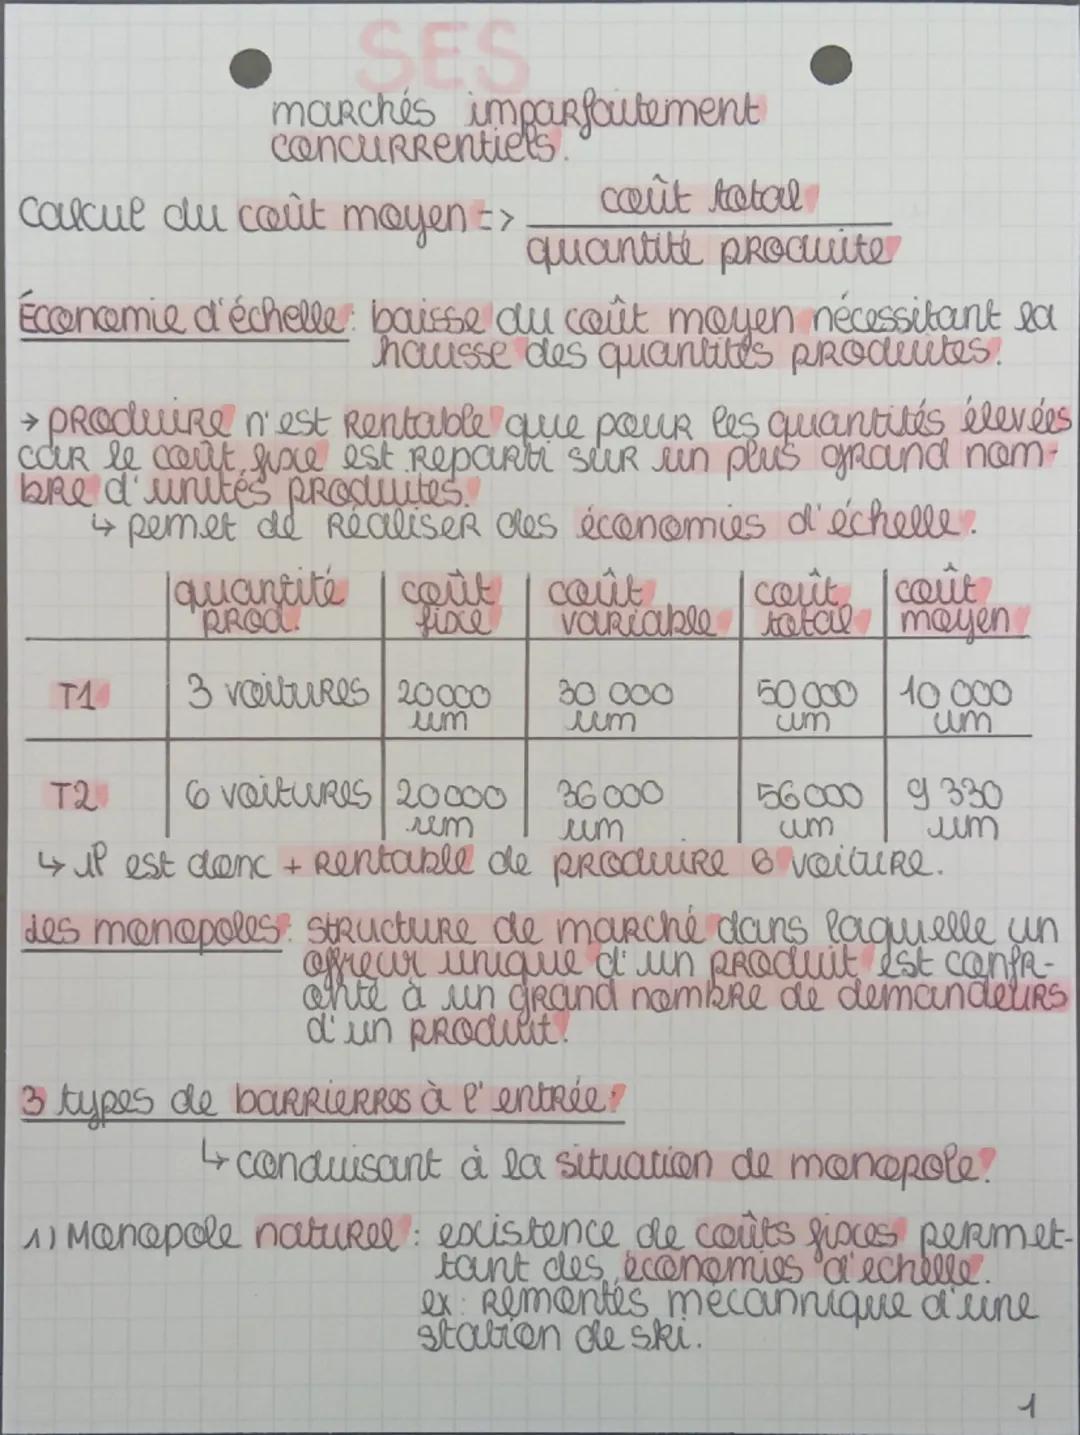 SES
marchés imparfaitement
concurrentiels.
Calcul du coût moyen => coût total
quantité produite
Économie d'échelle: baisse du coût moyen nécessitant la
hausse des quantités produites.
→ produire n'est rentable que pour les quantités élevées
car le coût fixe est reparti sur un plus grand nom-
bre d'unités produites.
↳ pemet de réaliser des économies d'échelle.
quantité prod. | coût fixe | coût variable | coût total | coût moyen
T1 | 3 voitures | 20000 um | 30 000 um | 50 000 um | 10 000 um
T2 | 6 voitures | 20000 um | 36 000 um | 56 000 um | 9 330 um
↳ il est donc + rentable de produire 6 voiture.
Les monopoles: structure de marché dans laquelle un
offreur unique d'un produit est confr-
onté à un grand nombre de demandeurs
d'un produit.
3 types de barrierres à l'entrée:
↳ conduisant à la situation de monopole.
1) Monopole naturel : existence de coûts fixes permet-
tant des économies d'echelle.
ex: Remontés mécannique d'une
station de ski.
1